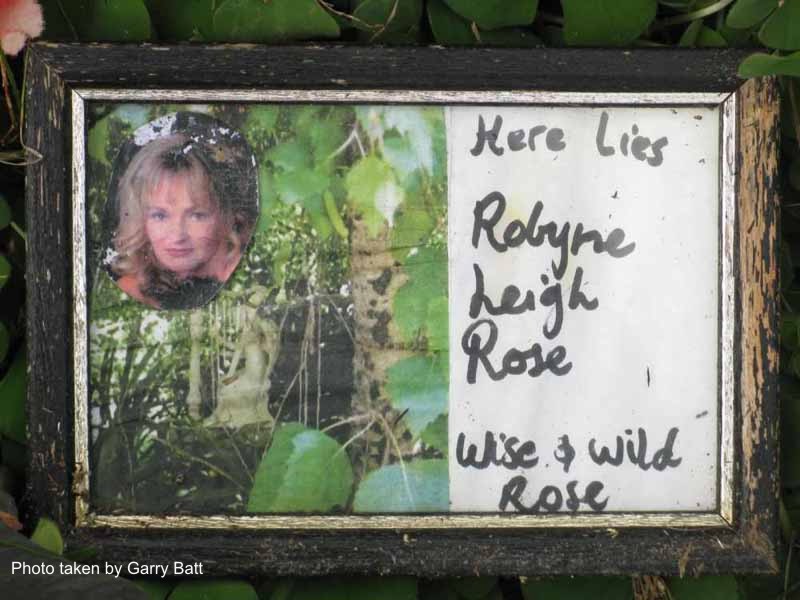 Here Lies
Robyne
Leigh
Rose
Wise & Wild
Rose
Photo taken by Garry Batt